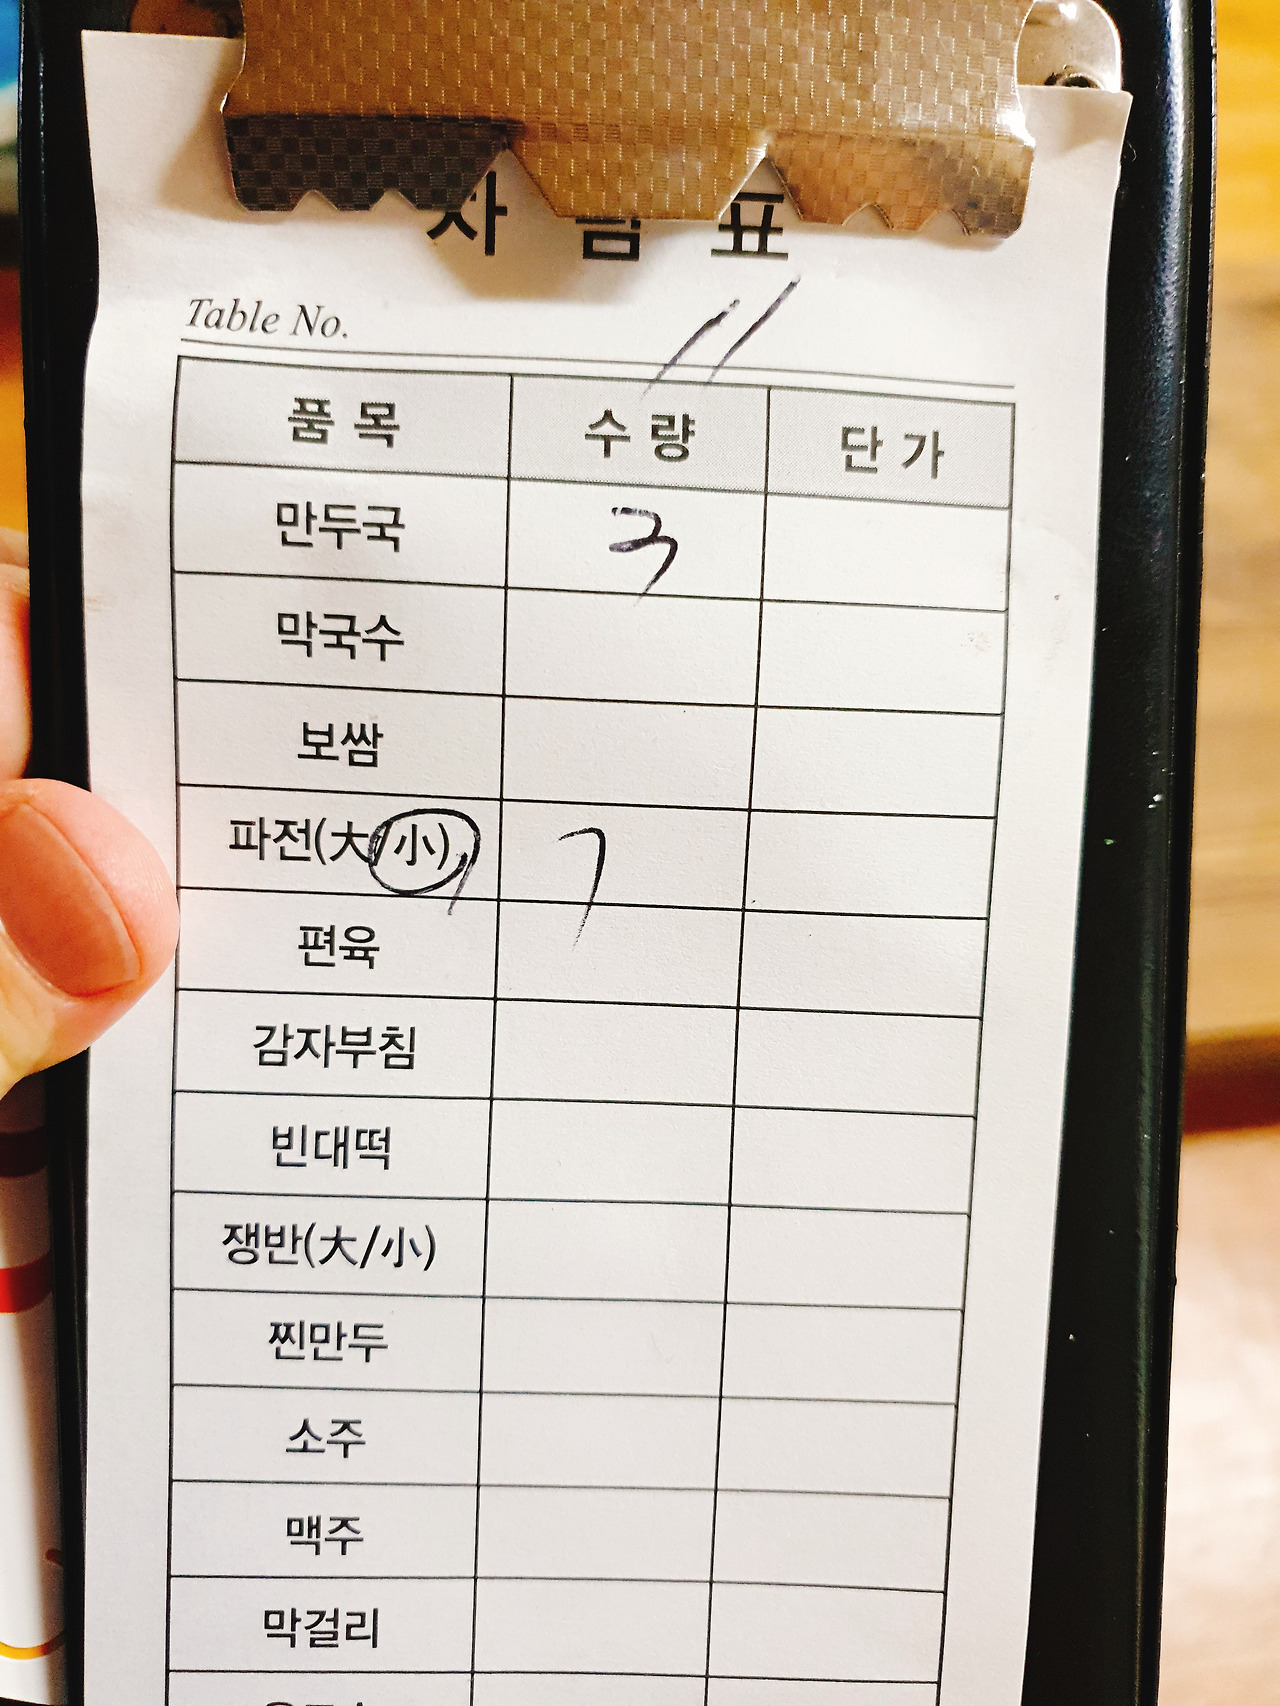 차림표
Table No. 11
품목 수량 단가
만두국 3
막국수
보쌈
파전(大/小) 1
편육
감자부침
빈대떡
쟁반(大/小)
찐만두
소주
맥주
막걸리